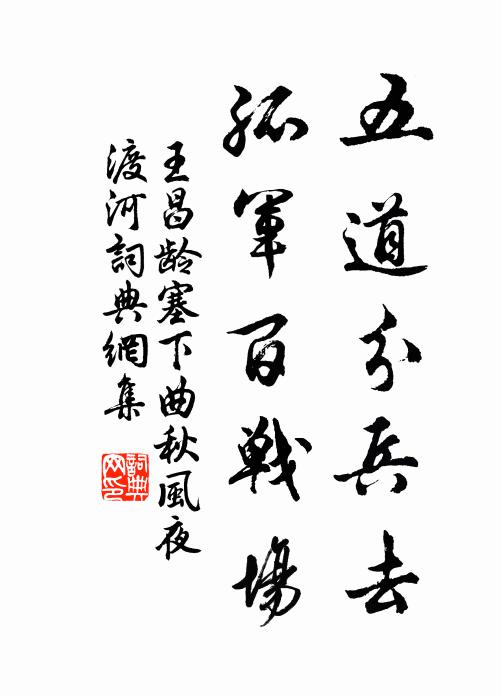 五道分兵去
孤軍百戰場
王昌龄塞下曲秋風夜
渡河詞典網集
詞典
网印